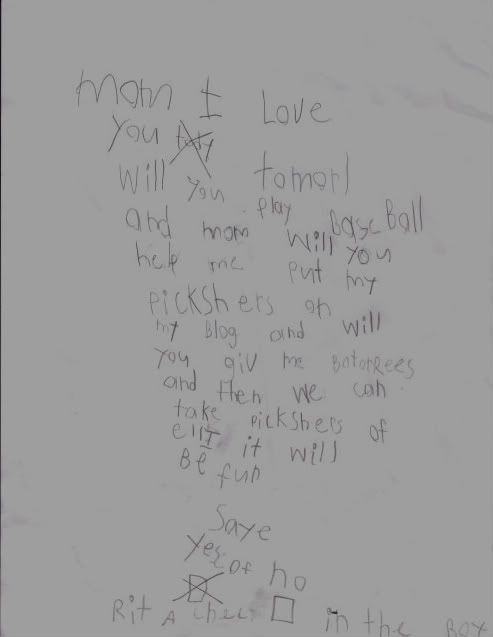 mom I Love
you
Will you tomorl
play BaseBall
and mom Will you
help me put my
pickshers on
my blog and will
you giv me Batorees
and then we can
take pickshers of
it will
Be fun
Saye
yes of no
Rit A chec in the Box